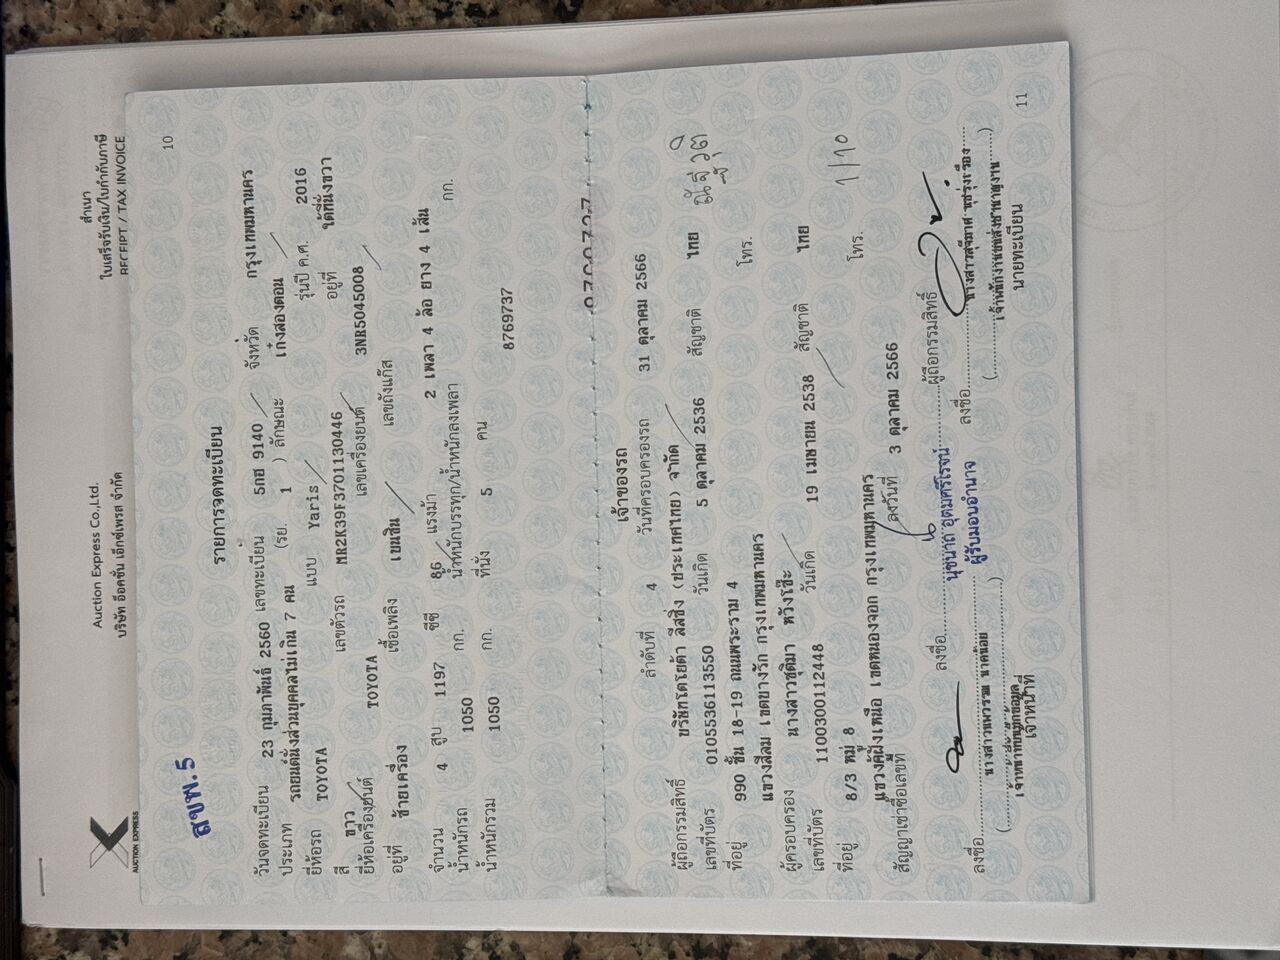 สำเนา
ใบเสร็จรับเงิน/ใบกำกับภาษี
RECEIPT / TAX INVOICE
Auction Express Co.,Ltd.
บริษัท อ๊อคชั่น เอ็กซ์เพรส จำกัด
AUCTION EXPRESS
10
สขพ.5
รายการจดทะเบียน
วันจดทะเบียน 23 กุมภาพันธ์ 2560 เลขทะเบียน 5กฮ 9140 จังหวัด กรุงเทพมหานคร
ประเภท รถยนต์นั่งส่วนบุคคลไม่เกิน 7 คน (รย. 1 ) ลักษณะ เก๋งสองตอน
ยี่ห้อรถ TOYOTA แบบ Yaris รุ่นปี ค.ศ. 2016
สี ขาว เลขตัวรถ MR2K39F3701130446 อยู่ที่ ใต้ที่นั่งขวา
ยี่ห้อเครื่องยนต์ TOYOTA เลขเครื่องยนต์ 3NR5045008
อยู่ที่ ซ้ายเครื่อง เชื้อเพลิง เบนซิน เลขถังแก๊ส
จำนวน 4 สูบ 1197 ซีซี 86 แรงม้า 2 เพลา 4 ล้อ ยาง 4 เส้น
น้ำหนักรถ 1050 กก. น้ำหนักบรรทุก/น้ำหนักลงเพลา กก.
น้ำหนักรวม 1050 กก. ที่นั่ง 5 คน 8769737
เจ้าของรถ
ลำดับที่ 4 วันที่ครอบครองรถ 31 ตุลาคม 2566
ผู้ถือกรรมสิทธิ์ บริษัทโตโยต้า ลีสซิ่ง (ประเทศไทย) จำกัด
เลขที่บัตร 0105536113550 วันเกิด 5 ตุลาคม 2536 สัญชาติ ไทย
ที่อยู่ 990 ชั้น 18-19 ถนนพระราม 4 โทร.
แขวงสีลม เขตบางรัก กรุงเทพมหานคร
ผู้ครอบครอง นางสาวชุติมา หวังโซ๊ะ
เลขที่บัตร 1100300112448 วันเกิด 19 เมษายน 2538 สัญชาติ ไทย
ที่อยู่ 8/3 หมู่ 8 โทร. 1/10
แขวงคู้ฝั่งเหนือ เขตหนองจอก กรุงเทพมหานคร
สัญญาเช่าซื้อเลขที่ ลงวันที่ 3 ตุลาคม 2566
ลงชื่อ นุชนาถ อุตมศรีโรจน์ ผู้ถือกรรมสิทธิ์
ผู้รับมอบอำนาจ
ลงชื่อ
ลงชื่อ
เจ้าหน้าที่
นายทะเบียน
11